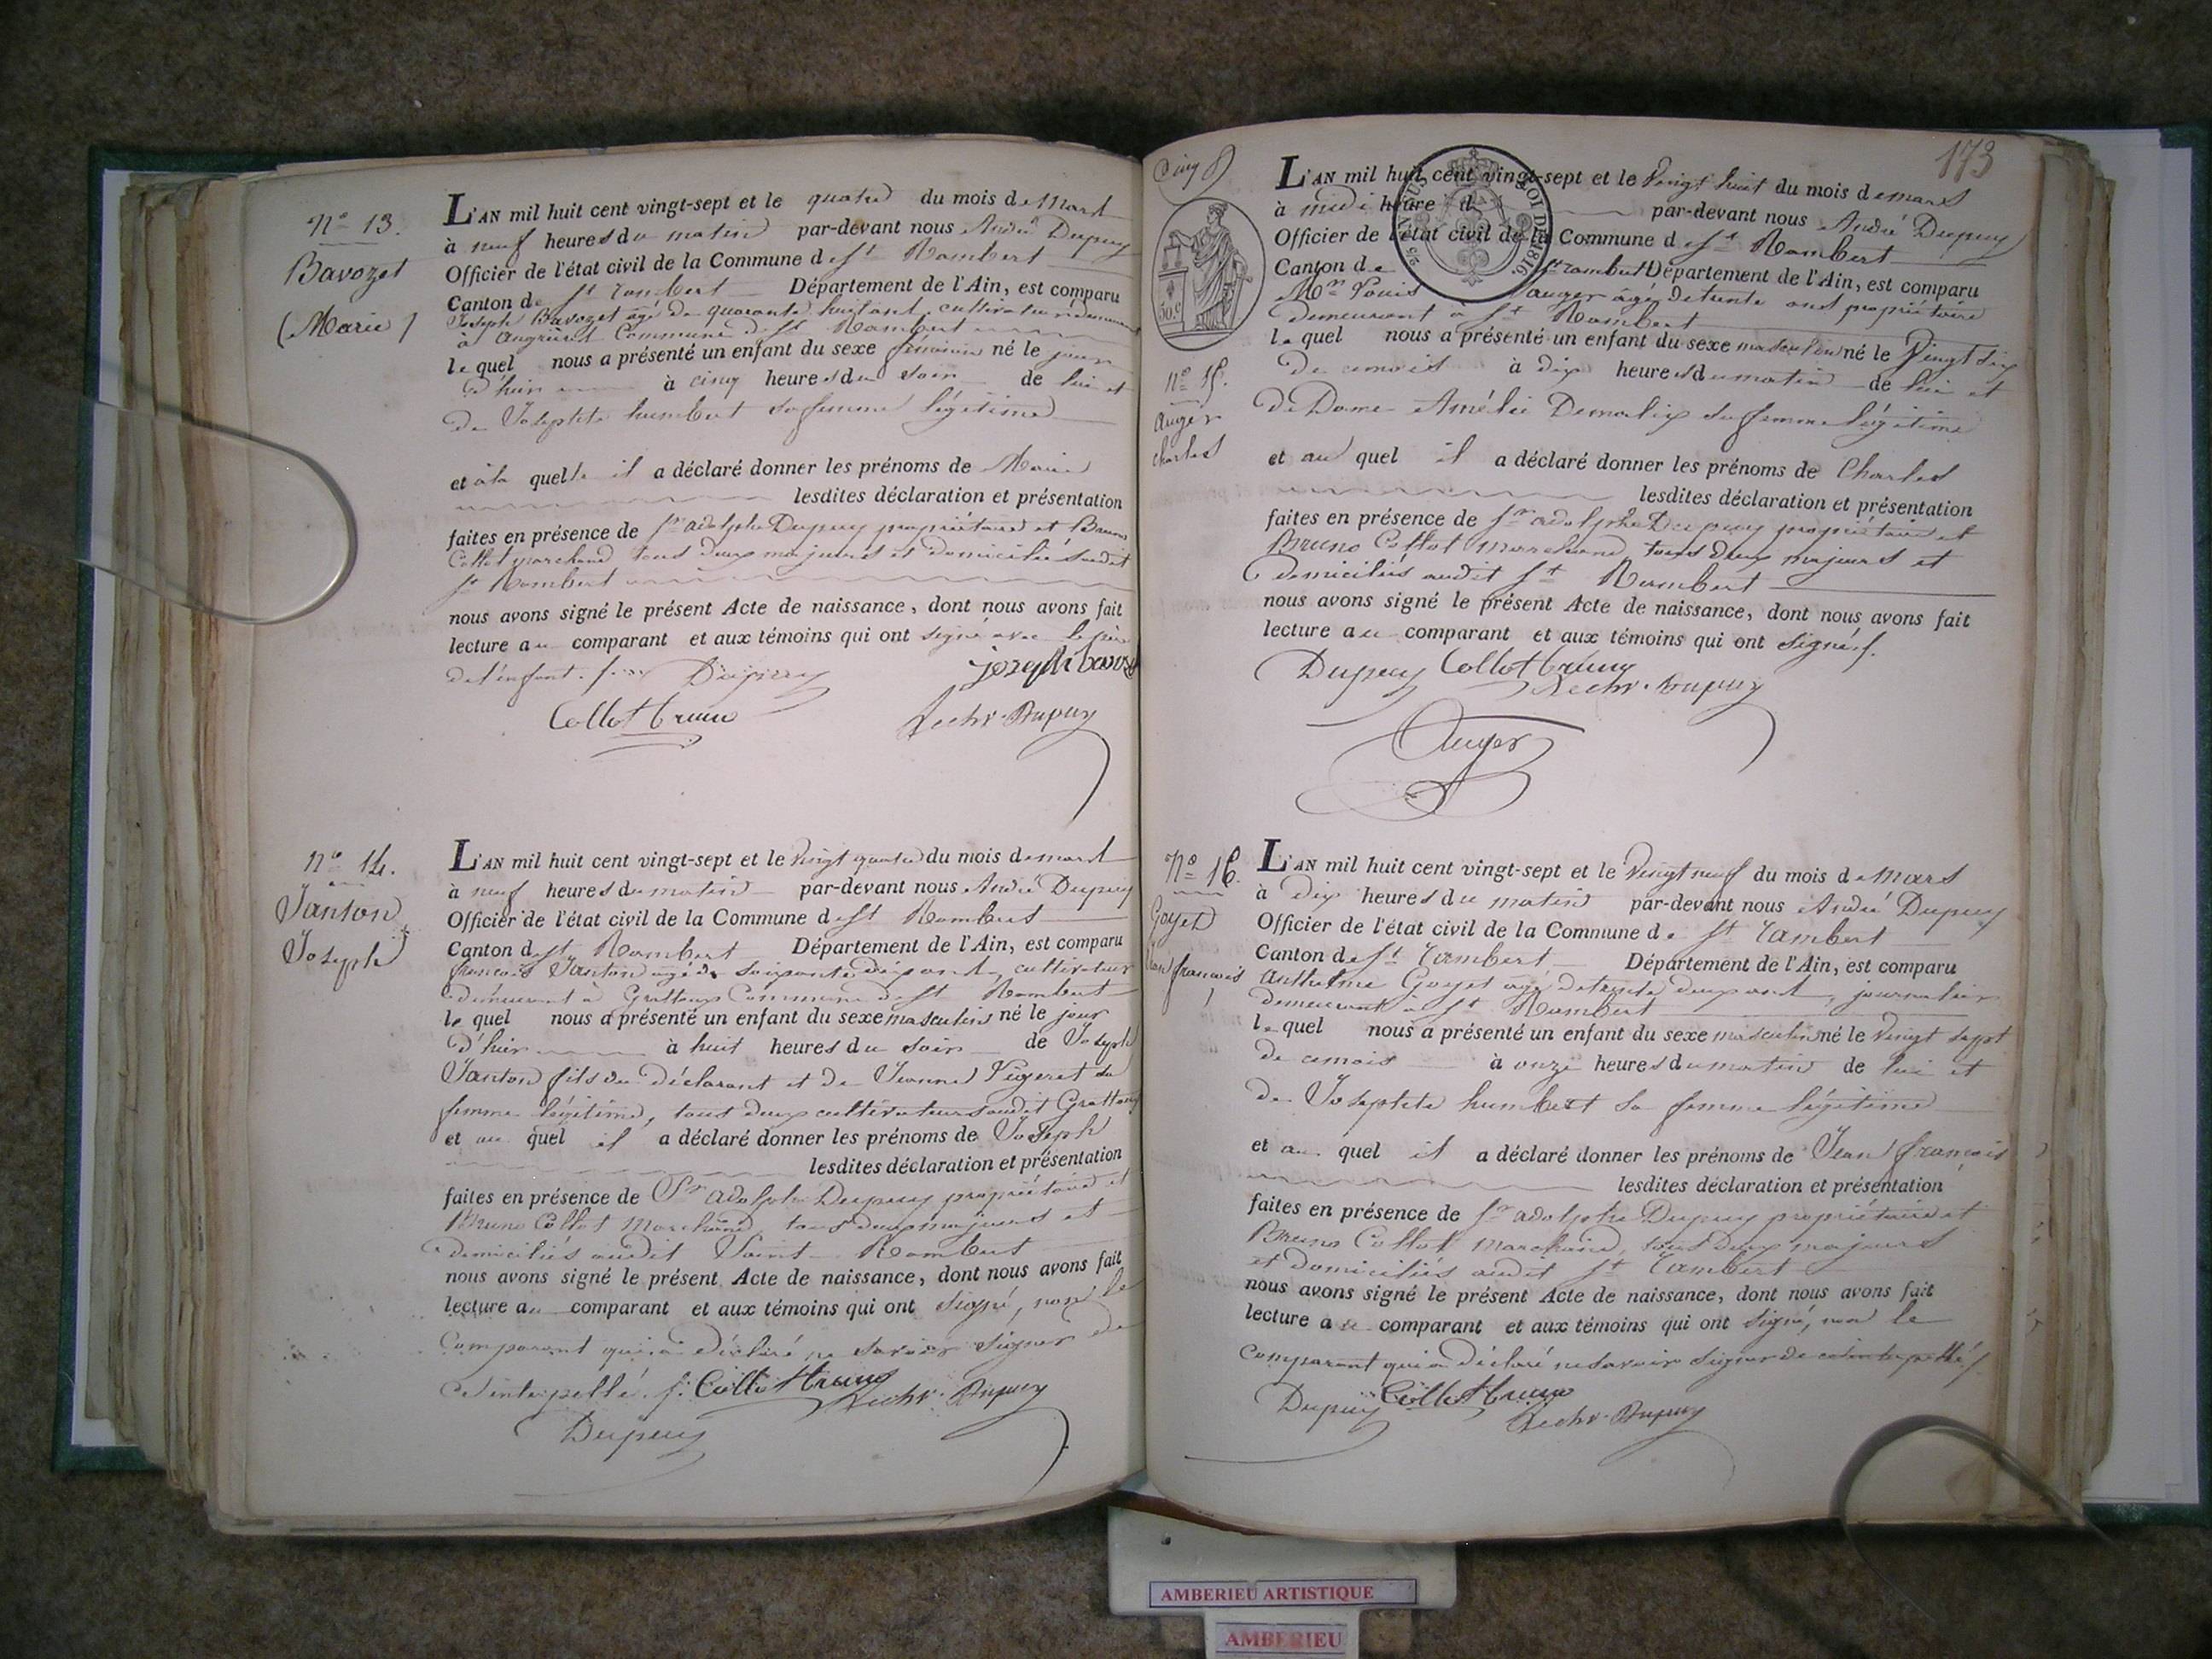 N.º 13.
Bavozet
(Marie)
L'AN mil huit cent vingt-sept et le quatre du mois de Mars
à neuf heures du matin par-devant nous André Dupuy
Officier de l'état civil de la Commune de St Rambert
Canton de St Rambert Département de l'Ain, est comparu
Joseph Bavozet âgé de quarante huit ans, cultivateur
à Angrieres Commune de St Rambert
lequel nous a présenté un enfant du sexe féminin né le jour
d'hier à cinq heures du soir de lui et
de Josephte humbert sa femme légitime
et à la quelle il a déclaré donner les prénoms de Marie
lesdites déclaration et présentation
faites en présence de Sr adolphe Dupuy propriétaire et Bruno
Collot marchand tous deux majeurs et domiciliés audit
St Rambert
nous avons signé le présent Acte de naissance, dont nous avons fait
lecture au comparant et aux témoins qui ont signé avec le père
de l'enfant. Dupuy
Collot bruno
Dupuy
N.º 14.
Janton
Joseph
L'AN mil huit cent vingt-sept et le Vingt quatre du mois de mars
à neuf heures du matin par-devant nous André Dupuy
Officier de l'état civil de la Commune de St Rambert
Canton de St Rambert Département de l'Ain, est comparu
francois Janton âgé de soixante dix ans, cultivateur
demeurant à Grattoux Commune de St Rambert
lequel nous a présenté un enfant du sexe masculin né le jour
d'hier à huit heures du soir de Joseph
Janton fils du déclarant et de Jeanne Vigeret sa
femme légitime, tous deux cultivateurs audit Grattoux
et au quel il a déclaré donner les prénoms de Joseph
lesdites déclaration et présentation
faites en présence de Sr adolphe Dupuy propriétaire et
Bruno Collot Marchand, tous deux majeurs et
domiciliés audit Saint Rambert
nous avons signé le présent Acte de naissance, dont nous avons fait
lecture au comparant et aux témoins qui ont signé, non le
Comparant qui a déclaré ne savoir signer de
ce interpellé. Collot bruno
Dupuy
Dupuy
173
50.c
1816
N.º 15.
Auger
Charles
L'AN mil huit cent vingt-sept et le Vingt huit du mois de mars
à midi heure d par-devant nous André Dupuy
Officier de l'état civil de la Commune de St Rambert
Canton de St rambert Département de l'Ain, est comparu
Mr Louis auger âgé de trente ans propriétaire
demeurant à St Rambert
lequel nous a présenté un enfant du sexe masculin né le Vingt six
de ce mois à dix heures du matin de lui et
de Dame Amélie Demalix sa femme légitime
et au quel il a déclaré donner les prénoms de Charles
lesdites déclaration et présentation
faites en présence de Sr adolphe Dupuy propriétaire et
Bruno Collot Marchand, tous deux majeurs et
domiciliés audit St Rambert
nous avons signé le présent Acte de naissance, dont nous avons fait
lecture au comparant et aux témoins qui ont signés.
Dupuy Collot bruno
Dupuy
Auger
N.º 16.
Goyet
Jean françois
L'AN mil huit cent vingt-sept et le Vingt neuf du mois de Mars
à dix heures du matin par-devant nous André Dupuy
Officier de l'état civil de la Commune de St Rambert
Canton de St Rambert Département de l'Ain, est comparu
Anthelme Goyet âgé de trente deux ans, journalier
demeurant à St Rambert
lequel nous a présenté un enfant du sexe masculin né le Vingt sept
de ce mois à onze heures du matin de lui et
de Josephte humbert sa femme légitime
et au quel il a déclaré donner les prénoms de Jean françois
lesdites déclaration et présentation
faites en présence de Sr adolphe Dupuy propriétaire et
Bruno Collot Marchand, tous deux majeurs
et domiciliés audit St Rambert
nous avons signé le présent Acte de naissance, dont nous avons fait
lecture au comparant et aux témoins qui ont signé, non le
Comparant qui a déclaré ne savoir signer de ce interpellé
Dupuy Collot bruno
Dupuy
AMBERIEU ARTISTIQUE
AMBERIEU